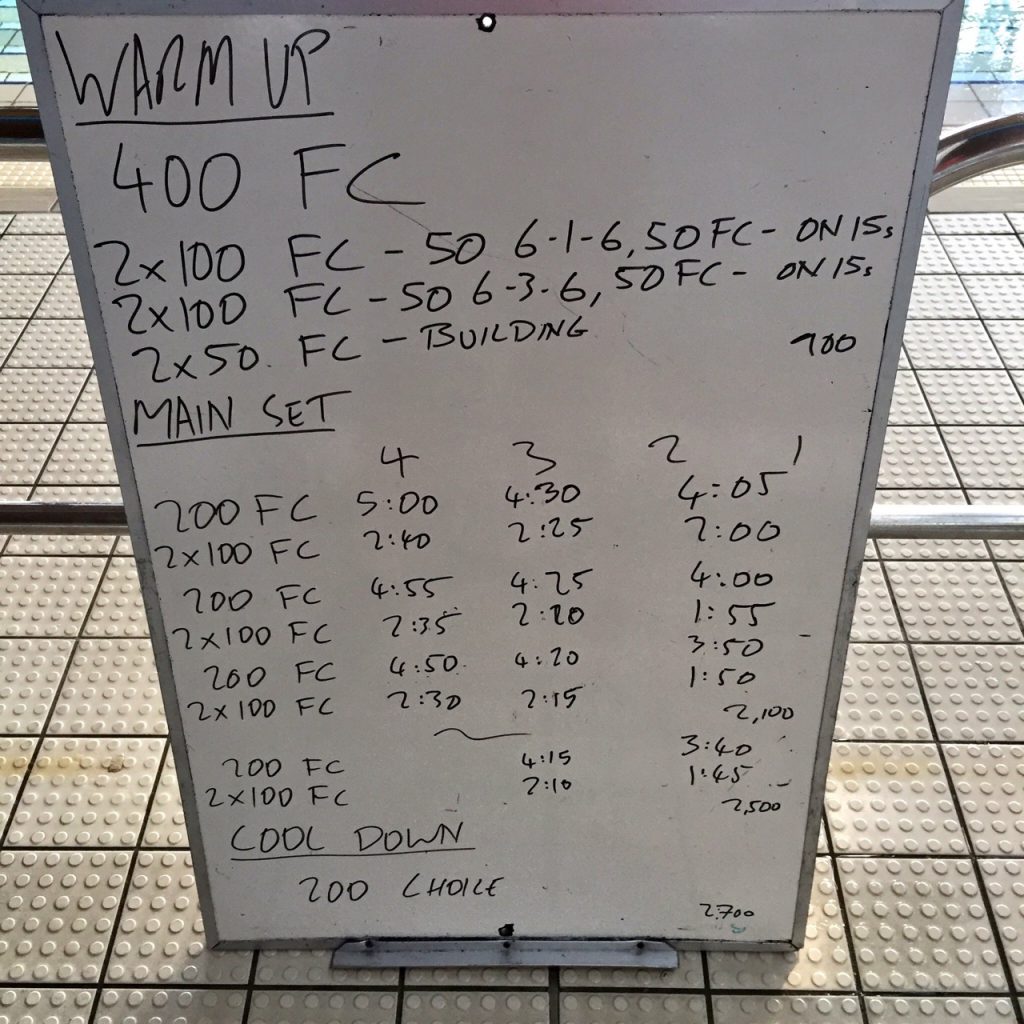 WARM UP
400 FC
2x100 FC - 50 6-1-6, 50 FC - ON 15s
2x100 FC - 50 6-3-6, 50 FC - ON 15s
2x50. FC - BUILDING
900
MAIN SET
4 3 2 1
200 FC 5:00 4:30 4:05
2x100 FC 2:40 2:25 2:00
200 FC 4:55 4:25 4:00
2x100 FC 2:35 2:20 1:55
200 FC 4:50 4:20 3:50
2x100 FC 2:30 2:15 1:50
2,100
200 FC 4:15 3:40
2x100 FC 2:10 1:45
2,500
COOL DOWN
200 CHOICE
2700